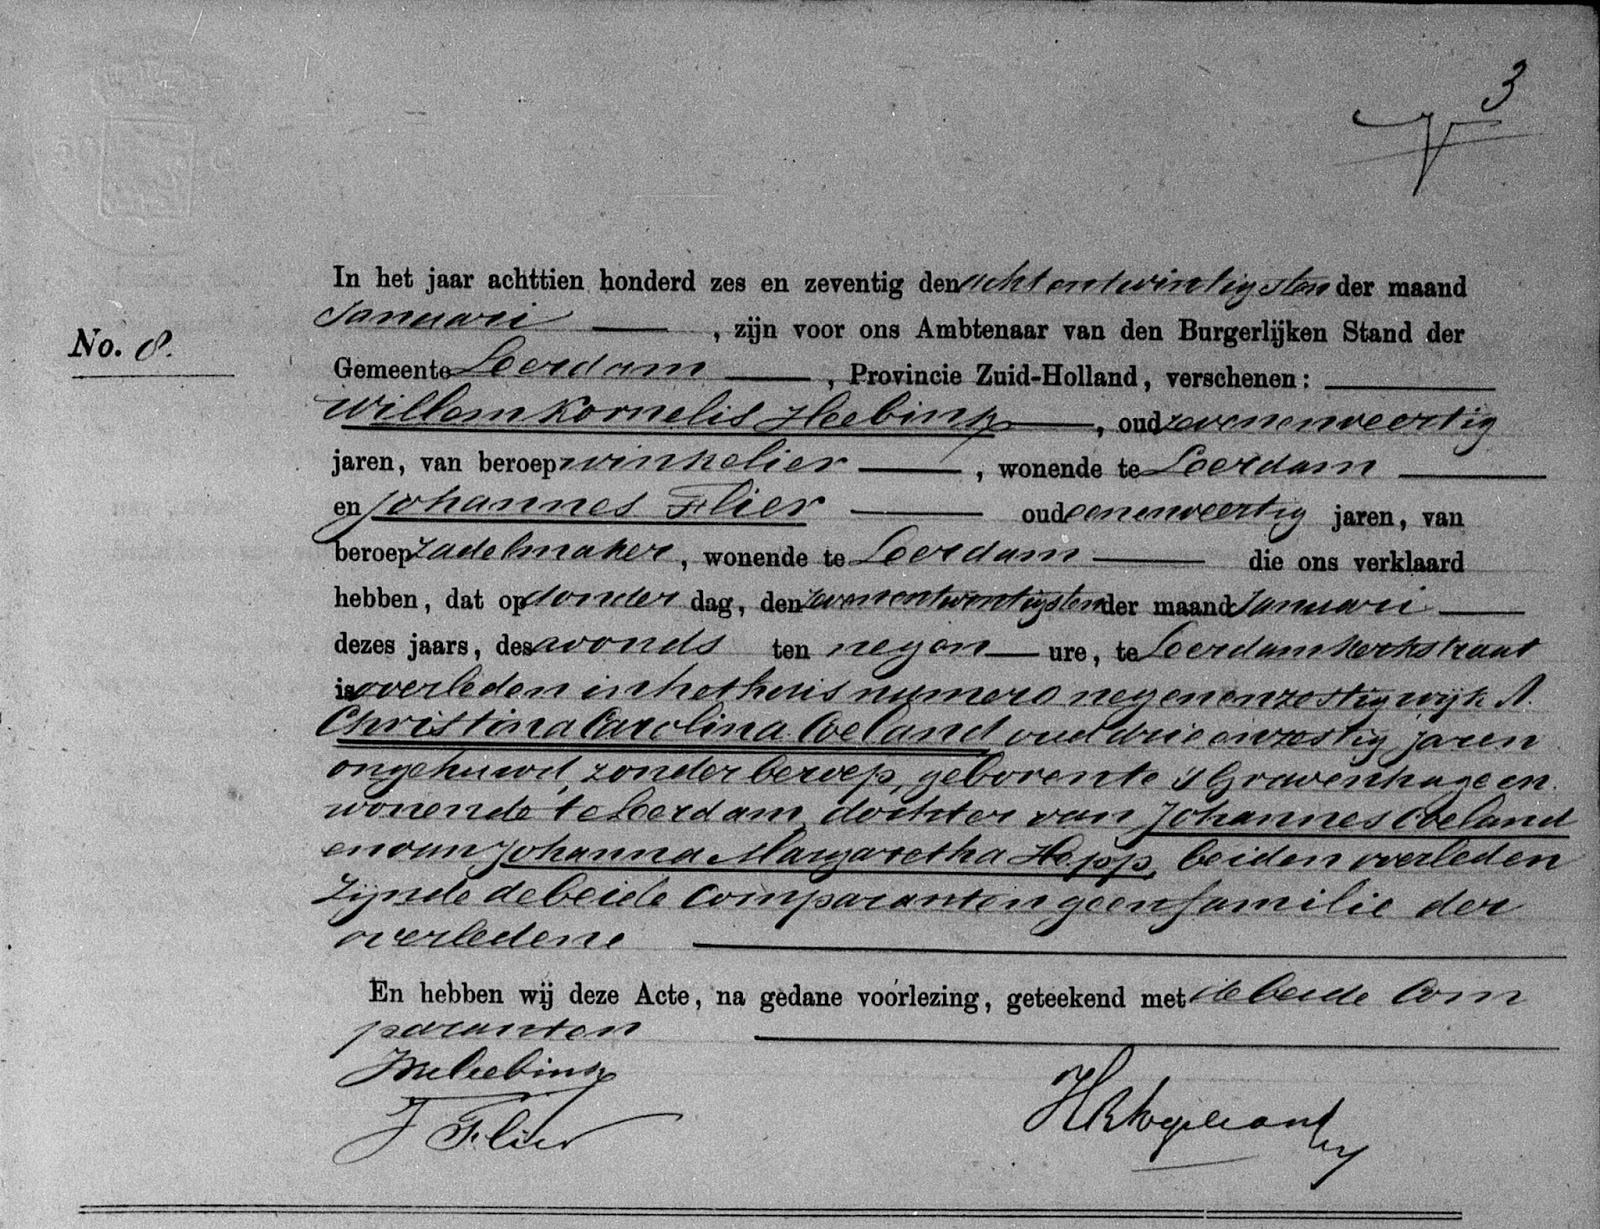 3
In het jaar achttien honderd zes en zeventig den achtentwintigsten der maand
Januari , zijn voor ons Ambtenaar van den Burgerlijken Stand der
No. 8.
Gemeente Leerdam , Provincie Zuid-Holland, verschenen:
Willem Kornelis Heebink , oud zevenenveertig
jaren, van beroep winkelier , wonende te Leerdam
en Johannes Flier oud eenenveertig jaren, van
beroep zadelmaker, wonende te Leerdam die ons verklaard
hebben, dat op donder dag, den zevenentwintigsten der maand Januari
dezes jaars, des avonds ten negen ure, te Leerdam Kerkstraat
is overleden in het huis numero negenenzestig wijk A.
Christina Carolina Coeland oud drieenzestig jaren
ongehuwd, zonder beroep, geboren te 's Gravenhage en
wonende te Leerdam, dochter van Johannes Coeland
en van Johanna Margaretha Hepp, beiden overleden
zijnde de beide comparanten geen familie der
overledene
En hebben wij deze Acte, na gedane voorlezing, geteekend met de beide Com
paranten
WKHeebink
J Flier